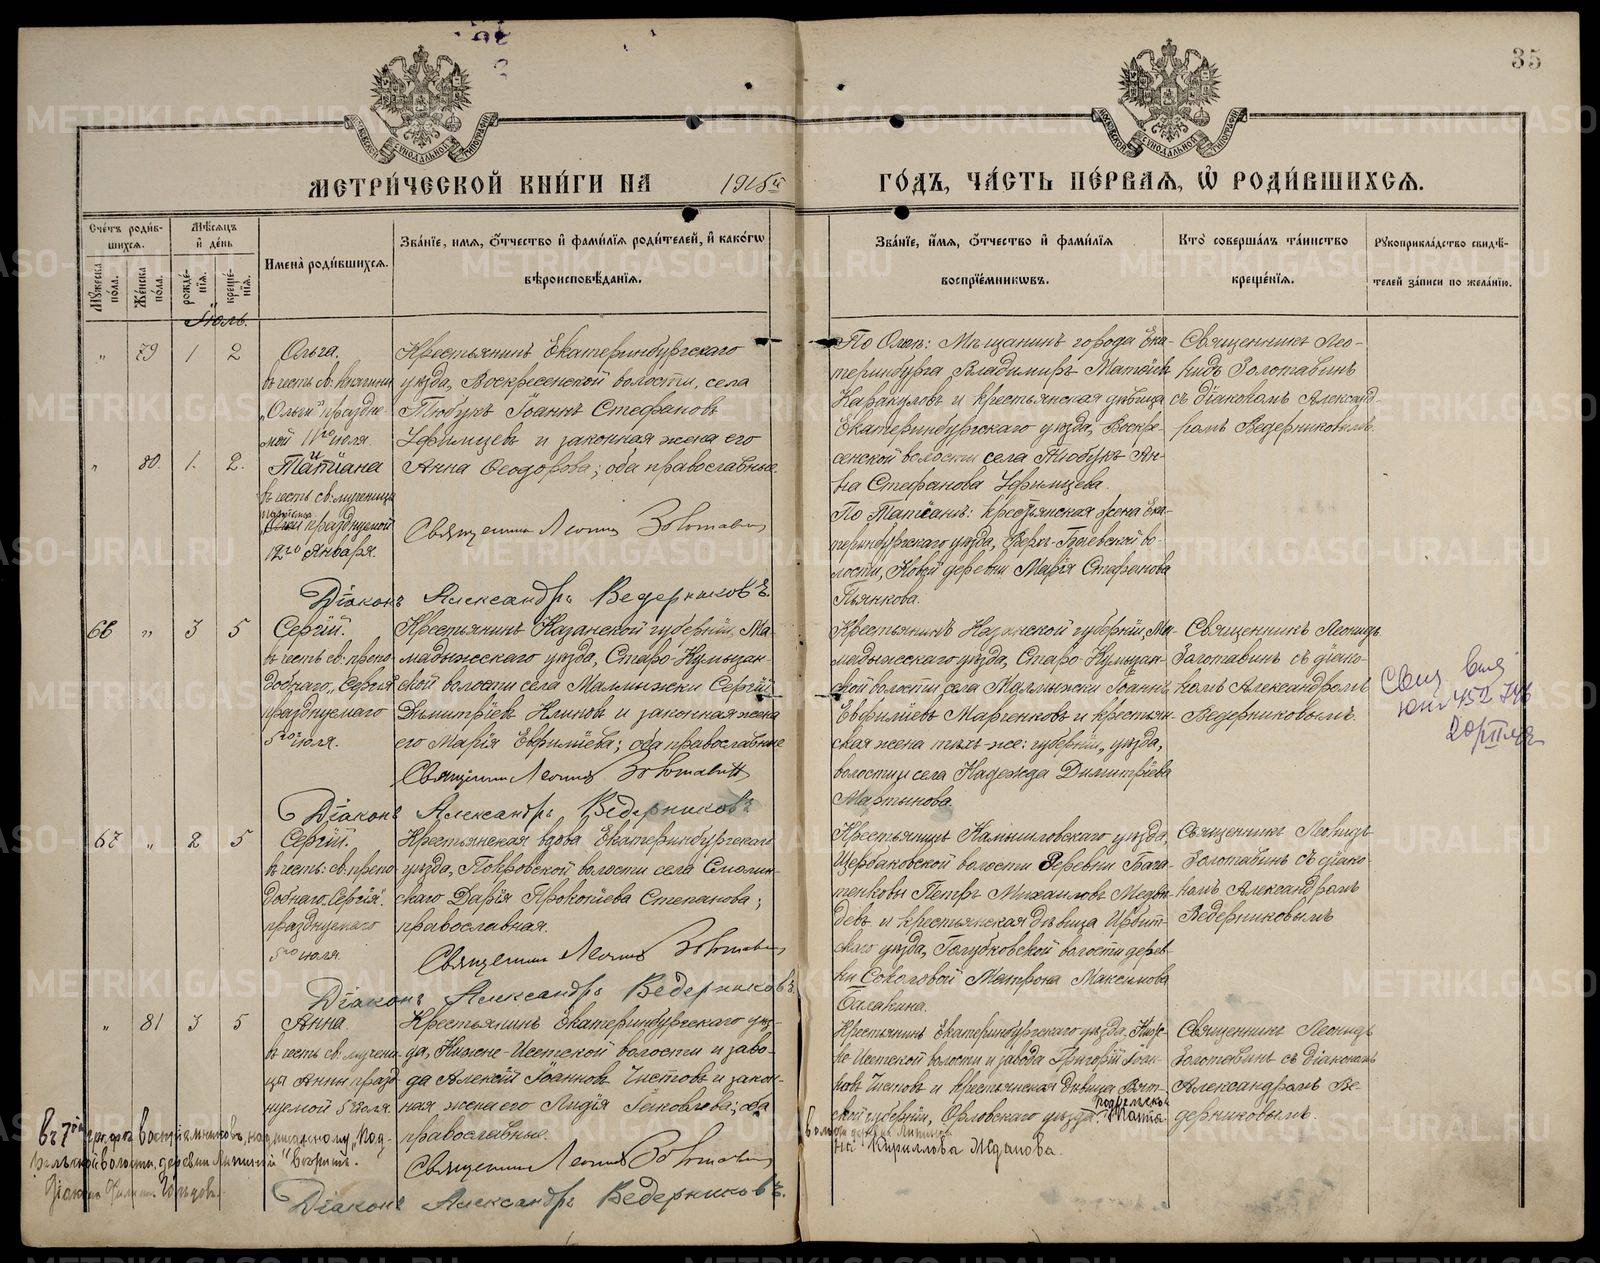 35
МОСКОВСКОЙ СѴНОДАЛЬНОЙ ТИПОГРАФІИ
МОСКОВСКОЙ СѴНОДАЛЬНОЙ ТИПОГРАФІИ
МЕТРИ́ЧЕСКОЙ КНИ́ГИ НА 1915й ГО́ДЪ, ЧА́СТЬ ПЕ́РВАЯ, Ѡ РОДИ́ВШИХСЯ.
Сче́тъ роди́вшихся.
Му́жеска по́ла.
Же́нска по́ла.
Мѣ́сяцъ и де́нь
рожде́нія.
креще́нія.
Имена̀ роди́вшихся.
Зва́ніе, имя, о́тчество и фами́лія роди́телей, и како́гѡ вѣроисповѣ́данія.
Зва́ніе, и́мя, о́тчество и фами́лія воспріе́мникѡвъ.
Кто̀ соверша́лъ та́инство креще́нія.
Рукоприкла́дство свидѣ́телей за́писи по жела́нію.
Іюль.
" 79 1 2
Ольга.
въ честь св: княгини
"Ольги" праздне-
мой 11го іюля.
Крестьянинъ Екатеринбургскаго
уѣзда, Воскресенской волости, села
Тюбукъ Іоаннъ Стефановъ
Уфимцевъ и законная жена его
Анна Ѳеодорова; оба православные.
По Ольг: Мѣщанинъ города Ека-
теринбурга Владимиръ Матѳіевъ
Каракуловъ и крестьянская дѣвица
Екатеринбургскаго уѣзда, Воскре-
сенской волости села Тюбукъ Ан-
на Стефанова Уфимцева.
Священникъ Лео-
нидъ Золотавинъ
съ діакономъ Александ-
ромъ Ведерниковымъ.
" 80. 1. 2.
Татіана
въ честь св: мученицы
празднуемой
12го Января.
Священникъ Леонидъ Золотавинъ
По Татіанѣ: крестьянская жена Ека-
теринбургскаго уѣзда,
лости, Новой деревни Марія Стефанова
Пьянкова.
Діаконъ Александръ Ведерниковъ.
66 " 3 5
Сергій.
въ честь св: препо-
добнаго "Сергія"
празднуемаго
5го іюля.
Крестьянинъ Казанской губерніи, Ма-
мадыжскаго уѣзда, Старо-Кумызан-
ской волости села Малмыжки Сергій
Димитріевъ Климовъ и законная жена
его Марія Евфиміева; оба православные
Священникъ Леонидъ Золотавинъ
Крестьянинъ Казанской губерніи, Ма-
мадыжскаго уѣзда, Старо-Кумызан-
ской волости села Малмыжки Іоаннъ
Евфиміевъ Марченковъ и крестьян-
ская жена тѣхъ-же: губерніи, уѣзда,
волости и села Надежда Димитріева
Мартынова.
Священникъ Леонидъ
Золотавинъ съ діако-
номъ Александромъ
Ведерниковымъ.
Діаконъ Александръ Ведерниковъ
67 " 2 5
Сергій.
въ честь: св: препо-
добнаго "Сергія".
празднуемаго
5го іюля.
Крестьянская вдова Екатеринбургскаго
уѣзда, Покровской волости села Смолин-
скаго Дарія Прокопіева Степанова;
православная.
Священникъ Леонидъ Золотавинъ
Крестьянинъ Камышловскаго уѣзда,
Щербаковской волости деревни Бага-
Петръ Михаиловъ Медвѣ-
девъ и крестьянская дѣвица Ирбит-
скаго уѣзда, Голубковской волости дерев-
ни Соколовой Матрона Максимова
Священникъ Леонидъ
Золотавинъ съ діако-
номъ Александромъ
Ведерниковымъ
Діаконъ Александръ Ведерниковъ.
" 81 3 5
Анна.
въ честь св: мучени-
цы Анны празд-
нуемой 5го іюля.
Крестьянинъ Екатеринбургскаго уѣз-
да, Нижне-Исетской волости и заво-
да Алексій Іоанновъ Чистовъ и закон-
ная жена его Лидія Іаковлева; оба
православные.
Священникъ Леонидъ Золотавинъ
Крестьянинъ Екатеринбургскаго уѣзда, Ниж-
не-Исетской волости и завода Григорій Іоан-
новъ Чистовъ и крестьянская дѣвица Вят-
ской губерніи, Орловскаго уѣзда
Кириллова Жданова.
Священникъ Леонидъ
Золотавинъ съ діакономъ
Александромъ Ве-
дерниковымъ.
Діаконъ Александръ Ведерниковъ.
въ 7й графѣ воспріемниковъ, надписанному "Под-
волости, деревни
Діаконъ